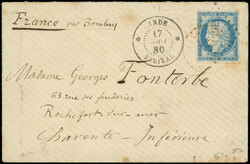 France par Bombay
INDE
17
80
Madame Georges Fonterbe
63 rue des fonderies
Rochefort-sur-mer
Charente-Inférieure